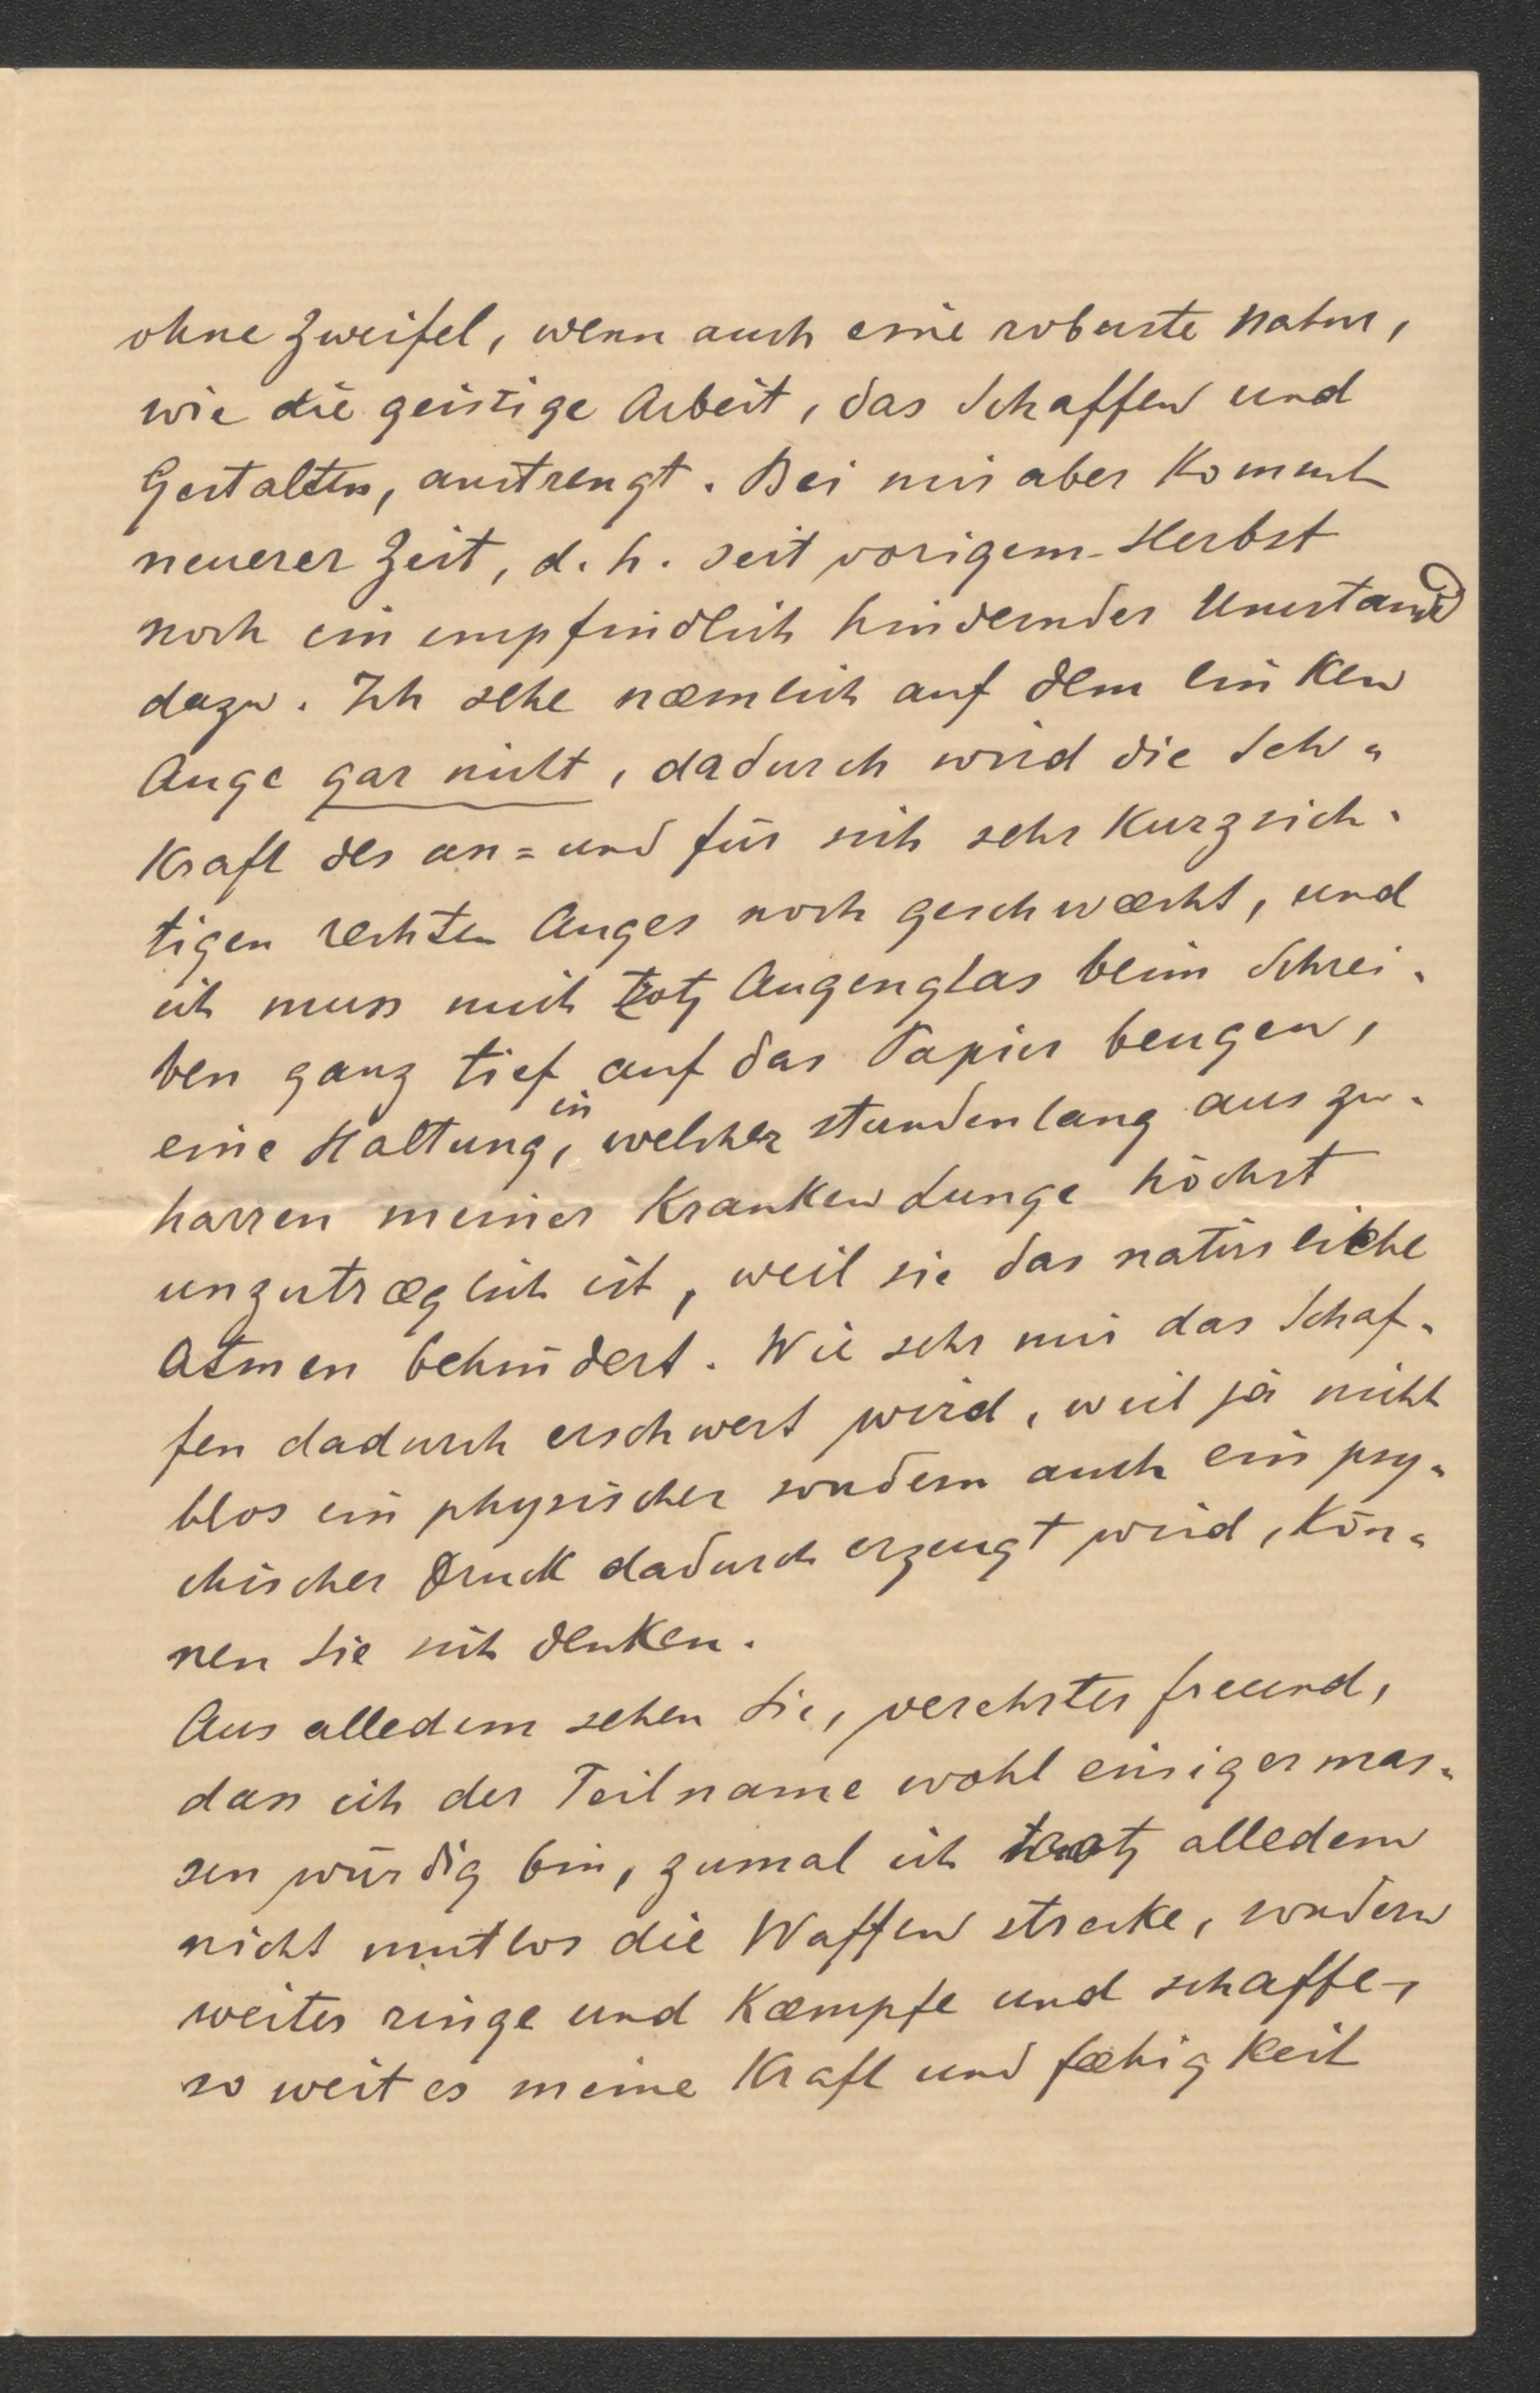 ohne Zweifel, wenn auch eine robuste Natur,
wie die geistige Arbeit, das Schaffen und
Gestalten, anstrengt. Bei mir aber kommt
neuerer Zeit, d. h. seit vorigem Herbst
noch ein empfindlich hindernder Umstand
dazu. Ich sehe næmlich auf dem linken
Auge gar nicht, dadurch wird die Seh-
kraft des an= und für sich sehr kurzsich-
tigen rechten Auges noch geschwæcht, und
ich muss mich trotz Augenglas beim Schrei-
ben ganz tief auf das Papier beugen,
eine Haltung, in welcher stundenlang auszu-
harren meiner kranken Lunge höchst
unzutræglich ist, weil sie das natürliche
Atmen behindert. Wie sehr mir das Schaf-
fen dadurch erschwert wird, weil ja nicht
blos ein physischer sondern auch ein psy-
chischer Druck dadurch erzeugt wird, kön-
nen Sie sich denken.
Aus alledem sehen Sie, verehrter Freund,
dass ich der Teilname wohl einigermas-
sen würdig bin, zumal ich trotz alledem
nicht mutlos die Waffen strecke, sondern
weiter ringe und kæmpfe und schaffe,
so weit es meine Kraft und Fæhigkeit